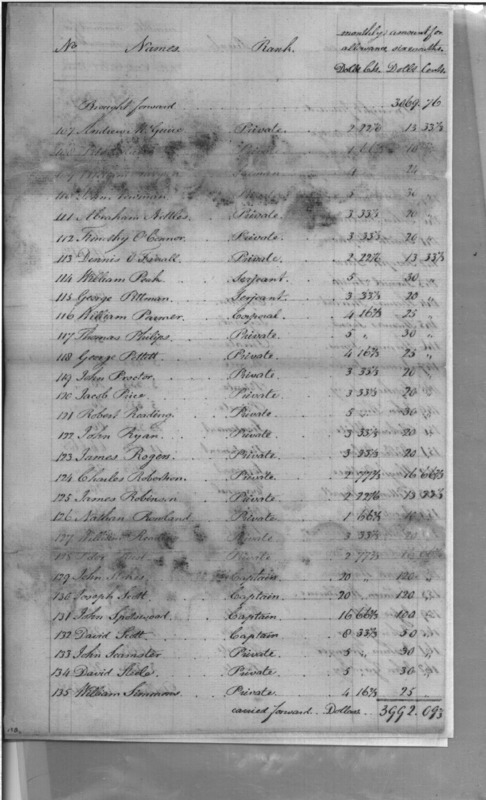 No. Names. Rank. monthly allowance amount for six months
Dolls Cts. Dolls Cents.
Brought forward 3069.76
107 Andrew McGuire Private 2 22⅔ 13 33⅓
Private 1 66⅔ 10
24
30
111 Abraham Nettles Private 3 33⅓ 20
112 Timothy O'Connor Private 3 33⅓ 20
113 Dennis Private 2 22⅔ 13 33⅓
114 William Serjeant 5 " 30
115 George Pittman Serjeant 3 33⅓ 20
116 William Parmer Corporal 4 16⅔ 25
117 Thomas Philips Private 5 " 30
118 George Pettitt Private 4 16⅔ 25 "
119 John Proctor Private 3 33⅓ 20
120 Jacob Price Private 3 33⅓ 20
121 Robert Reading Private 5 " 30
122 John Ryan Private 3 33⅓ 20
123 James Rogers Private 3 33⅓ 20
124 Charles Robertson Private 2 77⅔ 16 66⅔
125 James Robinson Private 2 22⅔ 13 33⅓
126 Nathan Rowland Private 1 66⅔ 10
127 William Private 3 33⅓ 20
Private 2 77⅔
129 John Captain 20 " 120 "
130 Joseph Scott Captain 20 " 120
131 John Spotswood Captain 16 66⅔ 100
132 David Scott Captain 8 33⅓ 50
133 John Private 5 " 30
134 David Steele Private 5 30
135 William Simmons Private 4 16⅔ 25 "
carried forward Dollars 3992.09⅓